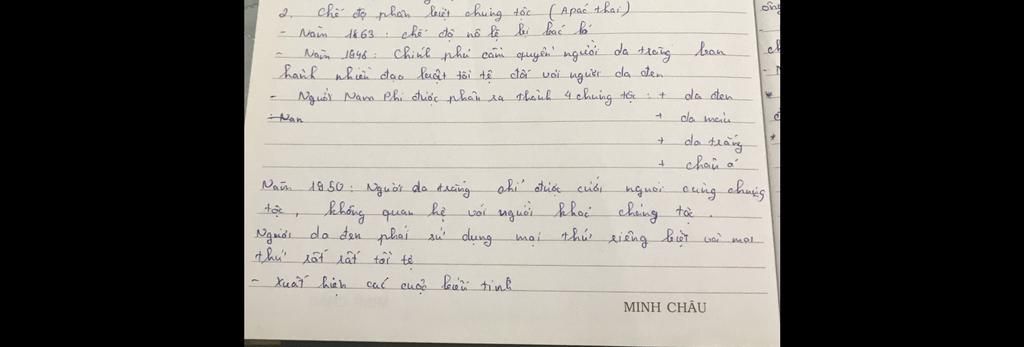 2. Chế độ phân biệt chủng tộc (Apac thai)
- Năm 1863 : chế độ nô lệ bị bác bỏ
- Năm 1948 : Chính phủ cầm quyền người da trắng ban
hành nhiều đạo luật tồi tệ đối với người da đen
- Người Nam Phi được phân ra thành 4 chủng tộc : + da đen
- Nan
+ da màu
+ da trắng
+ châu á
Năm 1950 : Người da trắng chỉ được cưới người cùng chủng
tộc, không quan hệ với người khác chủng tộc.
Người da đen phải sử dụng mọi thứ riêng biệt và mọi
thứ rất rất tồi tệ
- Xuất hiện các cuộc biểu tình
MINH CHÂU